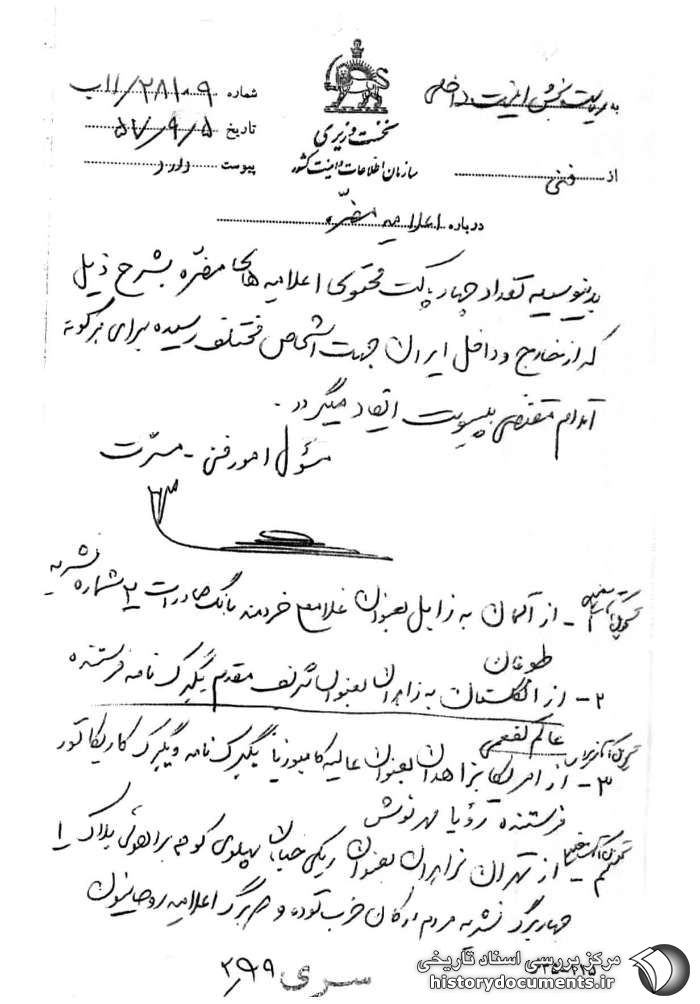 به مدیریت بخش امنیت داخلی
نخست وزیری
سازمان اطلاعات و امنیت کشور
شماره ۲۸۱۰۹/۱۱ب
تاریخ ۵۷/۹/۵
پیوست دارد
از فنی
درباره اعلامیه مضره
بدینوسیله تعداد چهار پاکت محتوی اعلامیه های مضره بشرح ذیل
که از خارج و داخل ایران جهت اشخاص مختلف رسیده برای هرگونه
اقدام مقتضی بپیوست ایفاد میگردد.
مسؤل امور فنی - مسرت
۱- از آلمان به زابل بعنوان غلامعلی خردمند بانک صادرات ۲ شماره نشریه
طوفان
۲- از انگلستان به زاهدان بعنوان شریف مقدم یکبرگ نامه فرستنده
عالم کفعمی
۳- از امریکا بزاهدان بعنوان عالیه کامبوزیا یکبرگ نامه و یکبرگ کاریکاتور
فرستنده رؤیا مهرنوش
۴- از تهران بزاهدان بعنوان ریگی خیابان پهلوی کوچه براهوئی پلاک ۱
چهار برگ نشریه مردم ارگان حزب توده و برگ اعلامیه روحانیون
سری
مرکز بررسی اسناد تاریخی
historydocuments.ir